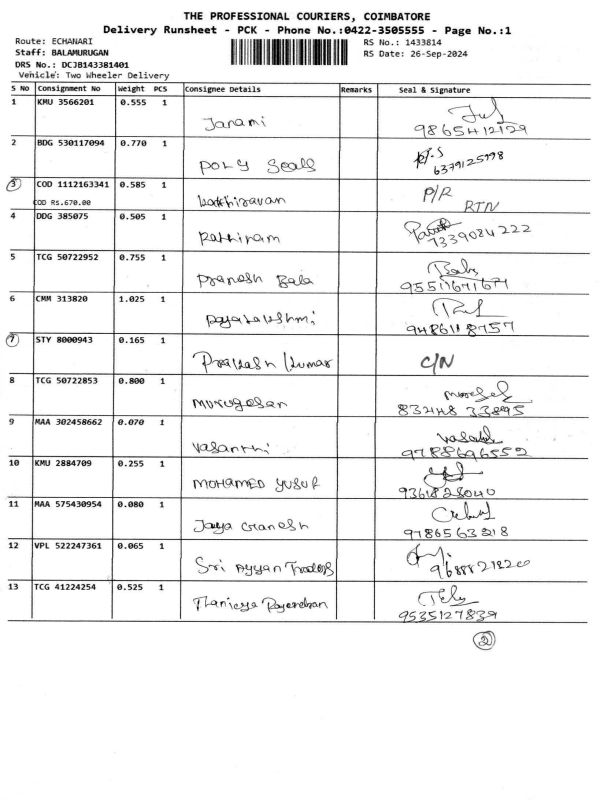 THE PROFESSIONAL COURIERS, COIMBATORE
Delivery Runsheet - PCK - Phone No.:0422-3505555 - Page No.:1
Route: ECHANARI RS No.: 1433814
Staff: BALAMURUGAN RS Date: 26-Sep-2024
DRS No.: DCJB143381401
Vehicle: Two Wheeler Delivery
S No Consignment No Weight PCS Consignee Details Remarks Seal & Signature
1 KMU 3566201 0.555 1
Janami
9865412129
2 BDG 530117094 0.770 1
POLY Seals
6379125998
3 COD 1112163341 0.585 1 P/R
COD Rs.670.00 Kathiravan RTN
4 DDG 385075 0.505 1
Rathinam 7339084222
5 TCG 50722952 0.755 1
Pranesh Bala Bala
9551167167
6 CMM 313820 1.025 1
9486118757
7 STY 8000943 0.165 1
Prakash Kumar C/N
8 TCG 50722853 0.800 1
Murugesan
83448 33895
9 MAA 302458662 0.070 1
Vasanthi
9788696552
10 KMU 2884709 0.255 1
MOHAMED YUSUF 9361828040
11 MAA 575430954 0.080 1
Jaya Ganesh 9786563218
12 VPL 522247361 0.065 1
Sri Ayyan Traders
13 TCG 41224254 0.525 1
9535127839
2